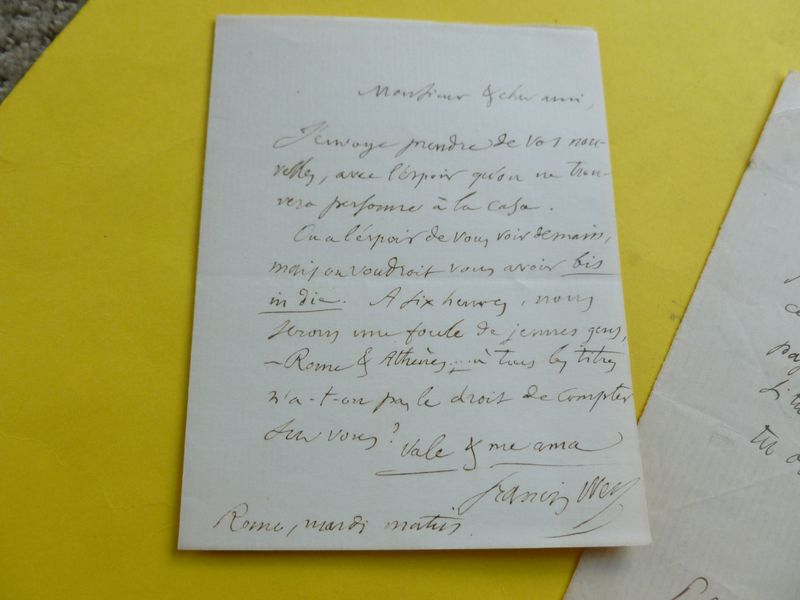 Monsieur & cher ami,
J'envoye prendre de vos nou-
velles, avec l'espoir qu'on ne trou-
vera personne à la casa.
On a l'espoir de vous voir demain,
mais on voudroit vous avoir bis
in die. A six heures, nous
serons une foule de jeunes gens,
– Rome & Athènes .... à tous les titres
n'a-t-on pas le droit de compter
sur vous?
Vale & me ama
Francis Wey
Rome, mardi matin.